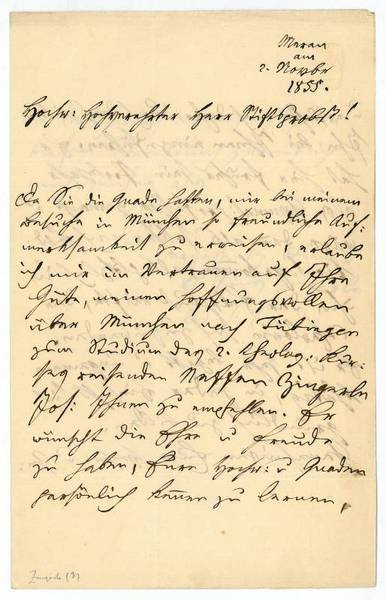 Meran
am
2. Novbr
1855.
Hochw: Hochverehrter Herr Stiftsprobst!
Da Sie die Gnade hatten, mir bei meinem
Besuche in München so freundliche Auf-
merksamkeit zu erweisen, erlaube
ich mir im Vertrauen auf Ihre
Güte, meinen hoffnungsvollen
über München nach Tübingen
zum Studium des 2. theolog: Kur-
ses reisenden Neffen Zingerle
Jos: Ihnen zu empfehlen. Er
wünscht die Ehre u Freude
zu haben, Euer Hochw: u Gnaden
persönlich kennen zu lernen,